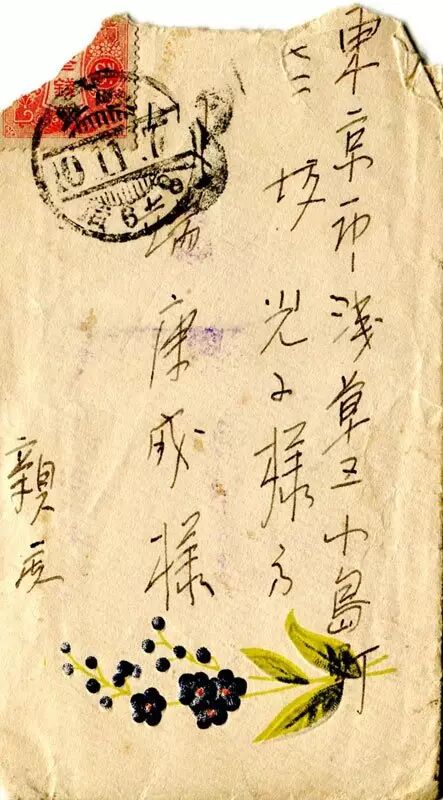 東京市浅草区小島町
七二
坂光子様方
端康成様
親展
三錢
10.11.7